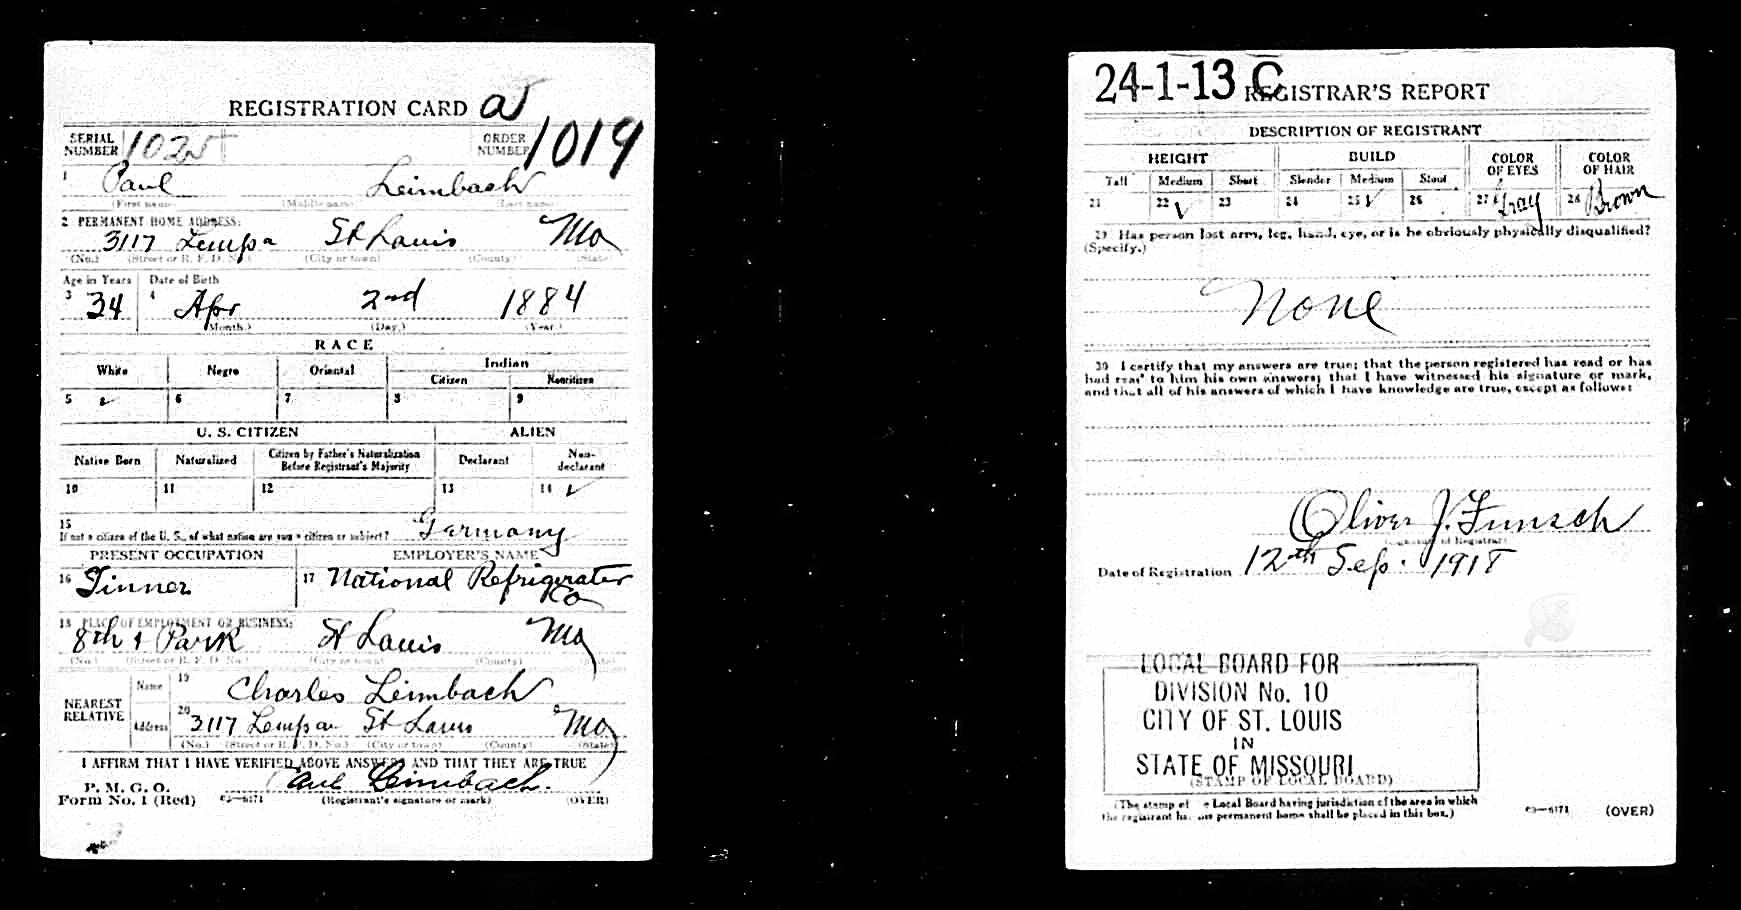 REGISTRATION CARD
SERIAL NUMBER 1025
ORDER NUMBER 1019
1 Paul Leimbach
(First name) (Middle name) (Last name)
2 PERMANENT HOME ADDRESS:
3117 Lempa St Louis Mo
(No.) (Street or R. F. D. No.) (City or town) (County) (State)
Age in Years Date of Birth
3 34 4 Apr 2nd 1884
(Month.) (Day.) (Year.)
RACE
White Negro Oriental Indian
Citizen Noncitizen
5 6 7 8 9
U. S. CITIZEN ALIEN
Native Born Naturalized Citizen by Father's Naturalization Before Registrant's Majority Declarant Non-declarant
10 11 12 13 14
15
If not a citizen of the U. S., of what nation are you a citizen or subject? Germany
PRESENT OCCUPATION EMPLOYER'S NAME
16 Tinner 17 National Refrigerater Co
18 PLACE OF EMPLOYMENT OR BUSINESS:
8th & Park St Louis Mo
(No.) (Street or R. F. D. No.) (City or town) (County) (State)
NEAREST RELATIVE
Name 19 Charles Leimbach
Address 20 3117 Lempa St Louis Mo
(No.) (Street or R. F. D. No.) (City or town) (County) (State)
I AFFIRM THAT I HAVE VERIFIED ABOVE ANSWERS AND THAT THEY ARE TRUE
P. M. G. O.
Form No. 1 (Red) 03—6171 Paul Leimbach.
(Registrant's signature or mark) (OVER)
24-1-13 C REGISTRAR'S REPORT
DESCRIPTION OF REGISTRANT
HEIGHT BUILD COLOR OF EYES COLOR OF HAIR
Tall Medium Short Slender Medium Stout
21 22 23 24 25 26 27 Gray 28 Brown
29 Has person lost arm, leg, hand, eye, or is he obviously physically disqualified?
(Specify.)
None
30 I certify that my answers are true; that the person registered has read or has
had read to him his own answers; that I have witnessed his signature or mark,
and that all of his answers of which I have knowledge are true, except as follows:
Oliver J. Funsch
(Signature of Registrar)
Date of Registration 12th Sep. 1918
LOCAL BOARD FOR
DIVISION No. 10
CITY OF ST. LOUIS
IN
STATE OF MISSOURI
(STAMP OF LOCAL BOARD)
(The stamp of Local Board having jurisdiction of the area in which
the registrant has his permanent home shall be placed in this box.)
03—6171 (OVER)